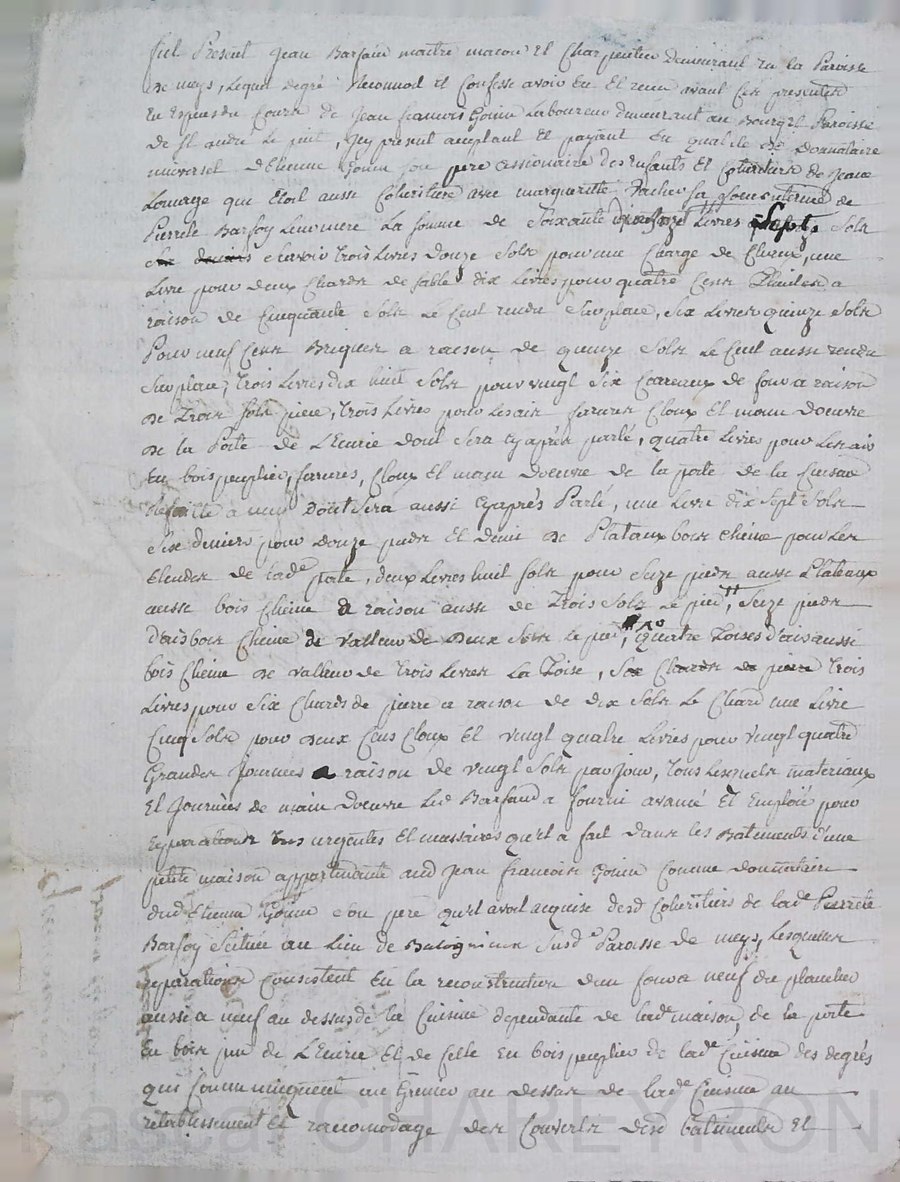 fut Present Jean Barfain maitre macon et Charpentier Demeurant en la Paroisse
De meys, Lequel degré Reconnod et Confesse avoir Eu et receu avant Ces presentes
En Especes du Cours de Jean francois Goinn Laboureur demeurant au Bourg et Paroisse
De St andré Le puit, Icy present acceptant Et payant En qualité De Donnataire
universel D'Etienne Goinn Son pere Cessionnaire des Enfants Et Coheritiers de Jeane
Lomage qui Etoit aussi Coheritiere avec margueritte Sa Soeur uterine de
Pierrete Barfoy Leur mere La Somme de Soixante Livres Sept Sols
Scavoir trois Livres Douze Sols pour une Charge de Chaux, une
Livre pour deux Chards de sable Dix Livres pour quatre Cens Thuiles a
raison de Cinquante Sols Le Cent rendu Sur place, Six Livres quinze Sols
Pour neuf Cens Briques a raison De quinze Sols Le Cent aussi rendu
Sur place, Trois Livres dix huit Sols pour vingt Six Carreaux de four a raison
De Trois Sols piece, trois Livres pour Les ais ferures Cloux Et main D'oeuvre
De la Porte De L'Ecurie dont Sera Cy après parlé, quatre Livres pour Les ais
En bois peuplier, ferures, Cloux Et main D'oeuvre De la porte De la Cuisine
Refaitte a neuf Dont Sera aussi Cy après Parlé, une Livre Dix Sept Sols
Six deniers pour Douze pieds Et Demi De Plataux bois Chéne pour Les
de lade porte, deux Livres huit Sols pour Seize pieds aussi Plataux
aussi bois Chéne a raison aussi De Trois Sols Le pied, Seize pieds
d'ais bois Chéne de valleur De Deux Sols Le pied, Quatre Toises d'ais aussi
bois Chéne De valleur De trois Livres La Toise, Six Chards de pierre Trois
Livres pour Six Chards de pierre a raison De dix Sols Le Chard une Livre
Cinq Sols pour Deux Cens Cloux Et vingt quatre Livres pour vingt quatre
Grandes Journées a raison De vingt Sols par Jour, Tous Lesquels materiaux
Et Journées De main D'oeuvre Led Barfand a fourni avancé Et Emploié pour
reparations urgentes Et necessaires qu'il a fait Dans les Batiments d'une
petite maison appartenante aud Jean francois Goinn Comme donnataire
dud Etienne Goinn Son pere qu'il avoit acquise desd Coheritiers de lade Pierrete
Barfoy Scituée au Lieu de Susde Paroisse De meys, Lesquelles
reparations Consistent En la reconstruction Dun four a neuf du plancher
aussi a neuf au dessus de la Cuisine dependante de lade maison, de la porte
En bois pin de L'Ecurie Et de Celle En bois peuplier de lade Cuisine des degrés
qui Communiquent au Grenier au dessus de lade Cuisine au
retablissement Et racomodage Des Couverts Desd batiments Et
Pascal CHAREYRON